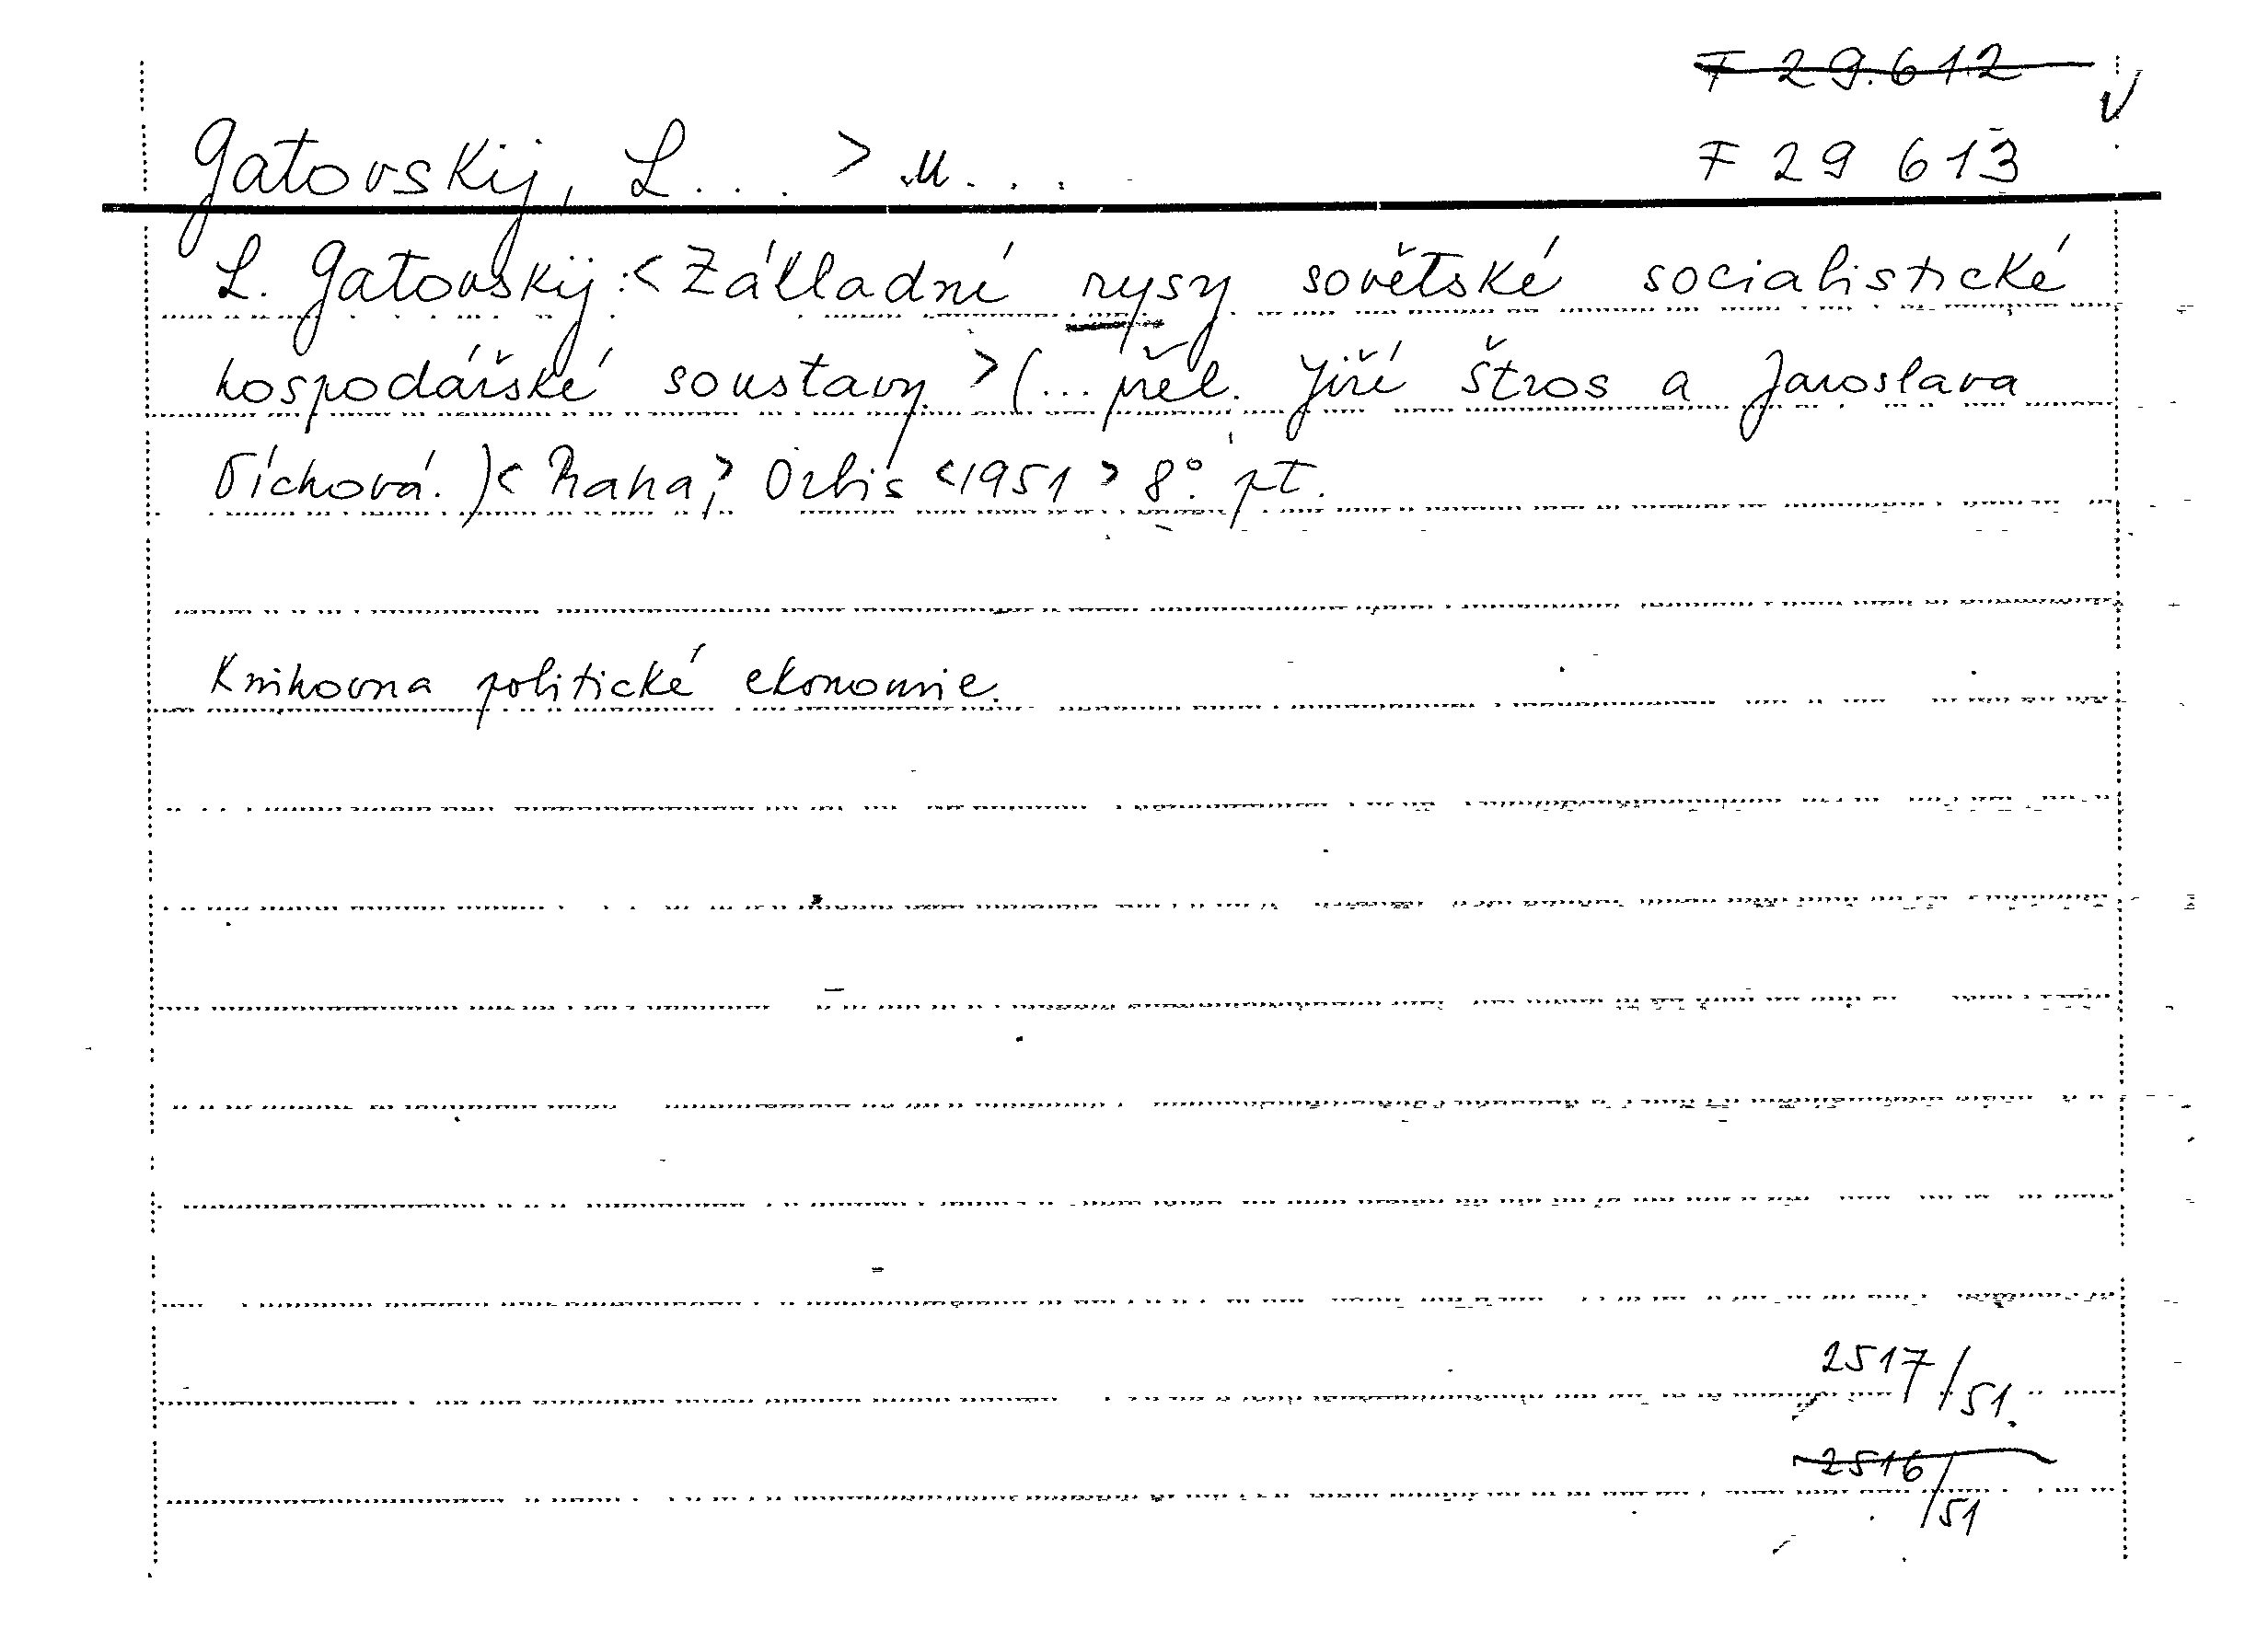 F 29.612
Gatovskij, L... > M... F 29 613
L. Gatovskij: < Základní rysy sovětské socialistické
hospodářské soustavy. > (... přel. Jiří Štros a Jaroslava
Víchová.) < Praha, > Orbis < 1951 > 8°. pt.
Knihovna politické ekonomie.
2517/51.
2516/51